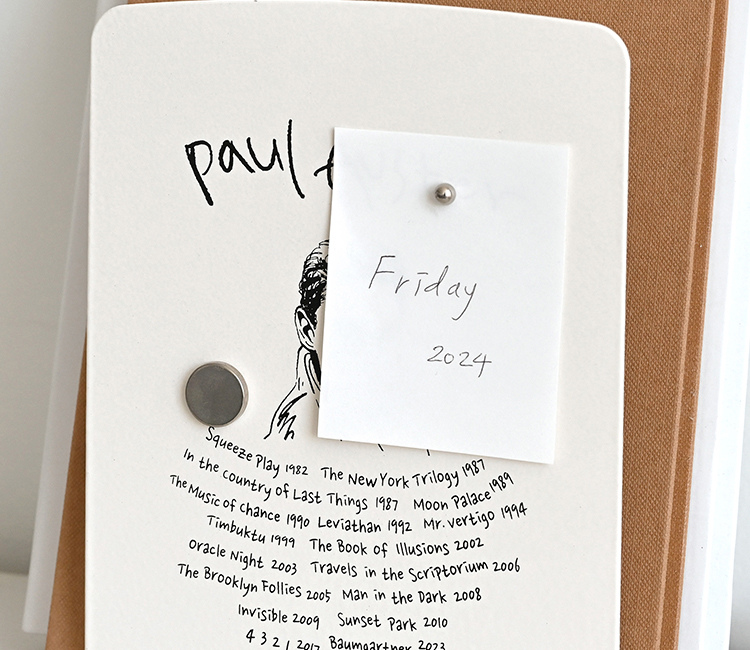 paul
Friday
2024
Squeeze Play 1982 The New York Trilogy 1987
In the country of Last Things 1987 Moon Palace 1989
The Music of Chance 1990 Leviathan 1992 Mr. Vertigo 1994
Timbuktu 1999 The Book of Illusions 2002
Oracle Night 2003 Travels in the Scriptorium 2006
The Brooklyn Follies 2005 Man in the Dark 2008
Invisible 2009 Sunset Park 2010
4 3 2 1 2017 Baumgartner 2023